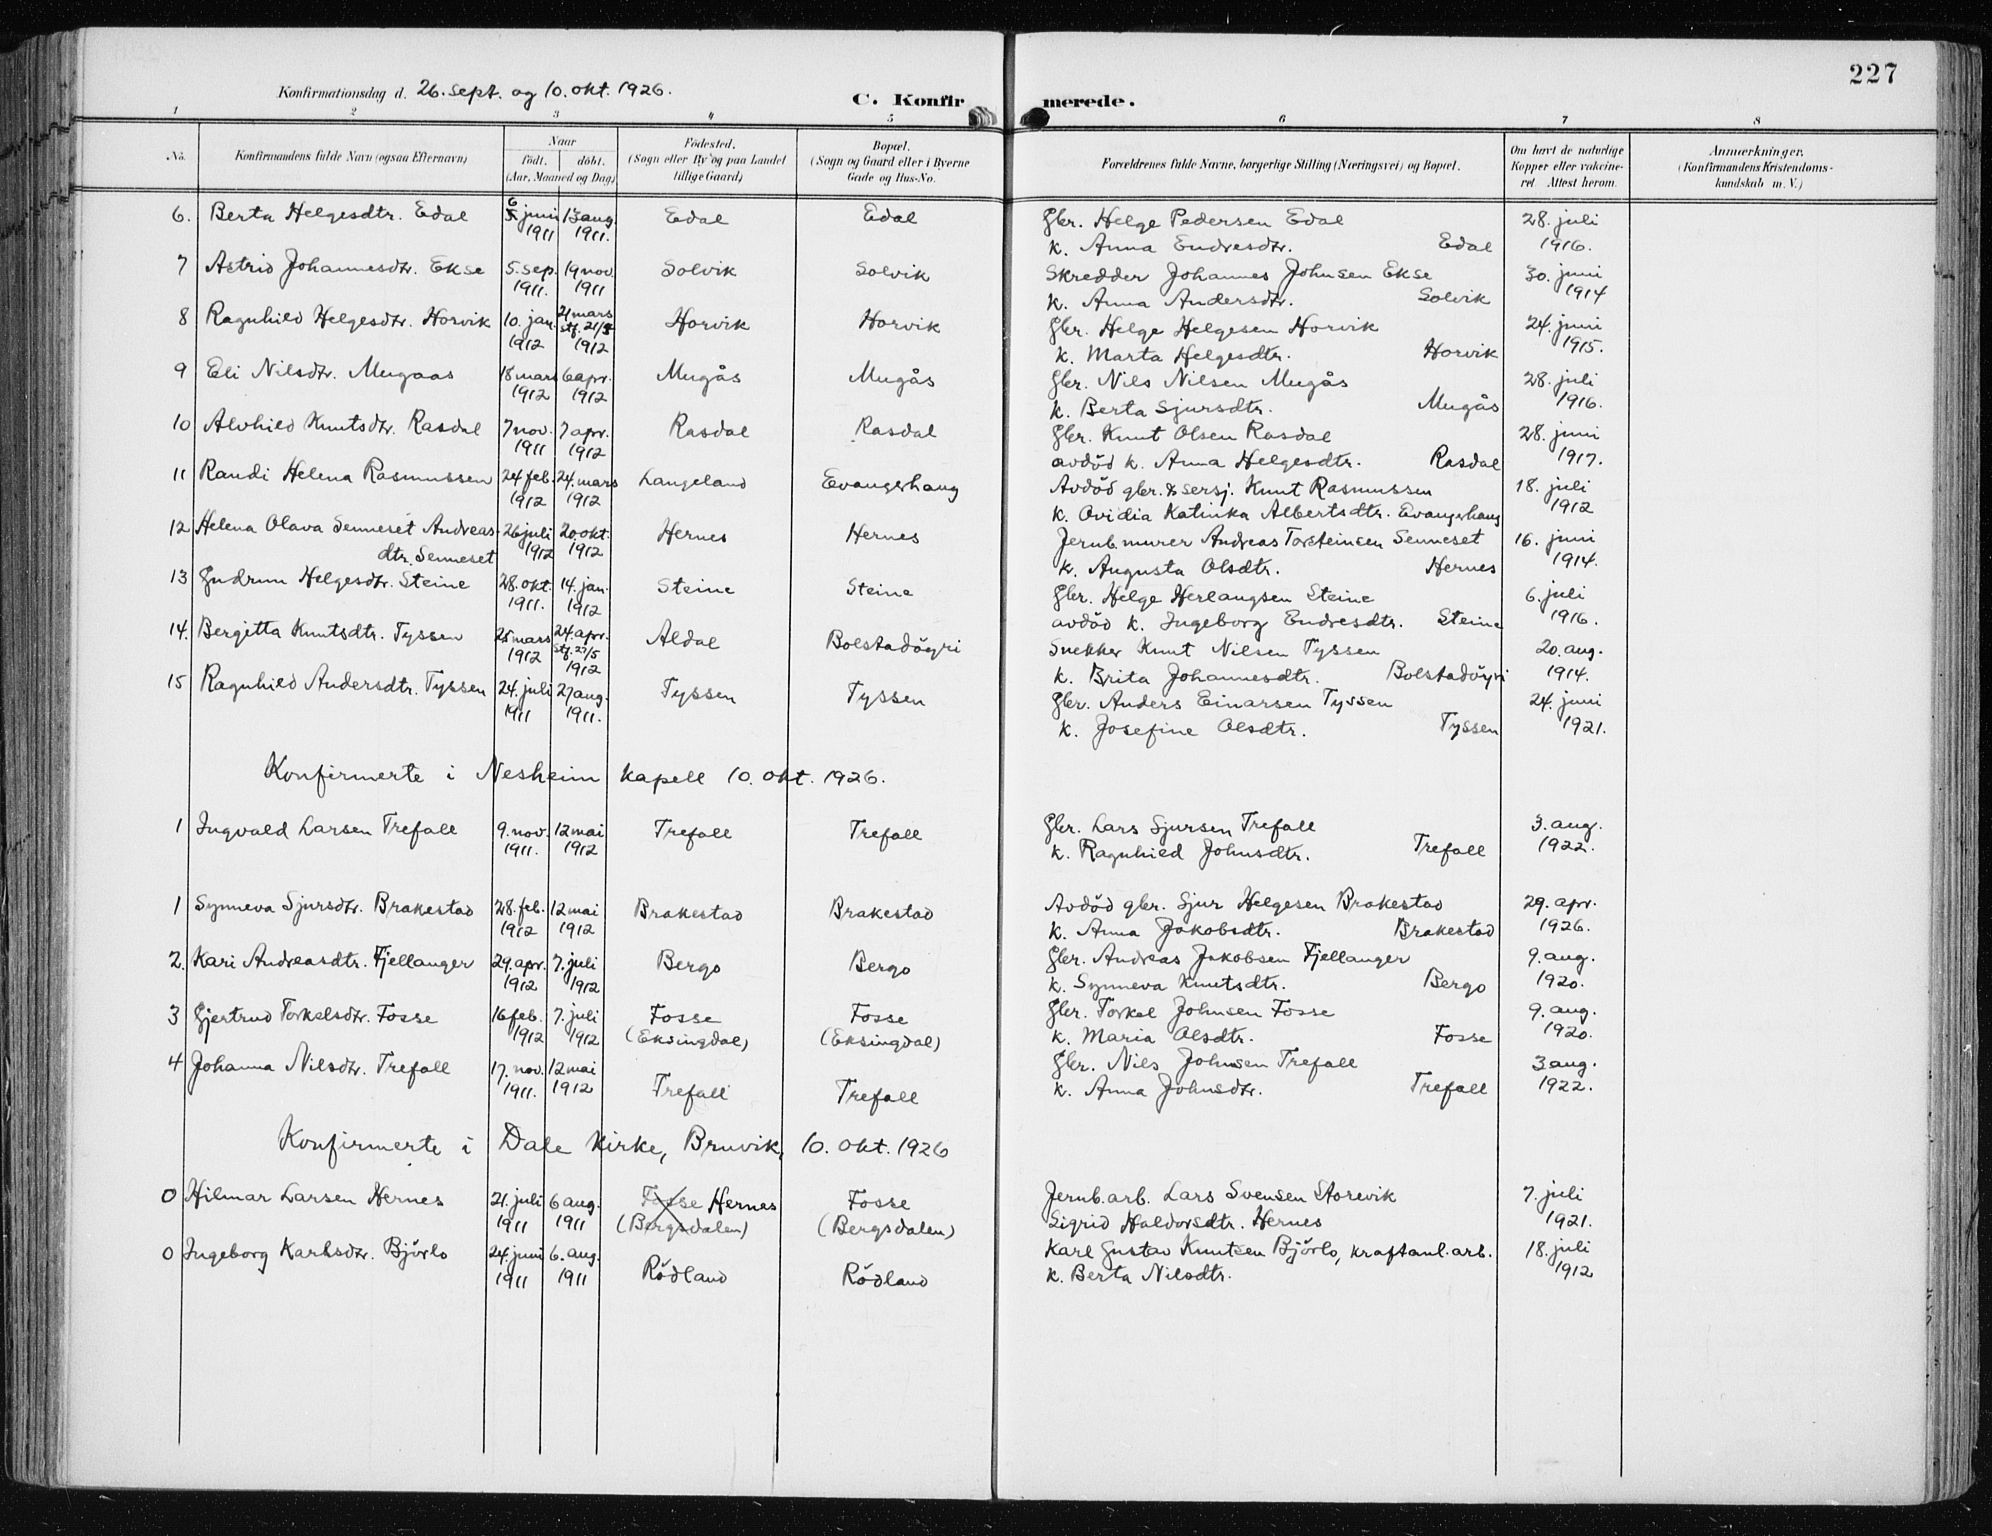 227
Konfirmationsdag d. 26. sept. og 10. okt. 1926.
C. Konfirmerede.
1 2 3 4 5 6 7 8
No. Konfirmandens fulde Navn (ogsaa Efternavn)
Naar
födt. döbt.
(Aar, Maaned og Dag)
Födested.
(Sogn eller By og paa Landet
tillige Gaard)
Bopæl.
(Sogn og Gaard eller i Byerne
Gade og Hus-No.
Forældrenes fulde Navne, borgerlige Stilling (Næringsvei) og Bopæl.
Om havt de naturlige
Kopper eller vakcine-
ret. Attest herom.
Anmærkninger,
(Konfirmandens Kristendoms-
kundskab m. V.)
6. Berta Helgesdtr. Edal 6 juni 13 aug. Edal Edal Gbr. Helge Pedersen Edal 28. juli
1911 1911. k. Anna Endresdtr. Edal 1916.
7 Astrid Johannesdtr. Ekse 5. sep. 19 nov. Solvik Solvik Skredder Johannes Johnsen Ekse 30. juni
1911. 1911 k. Anna Andersdtr. Solvik 1914
8 Ragnhild Helgesdtr. Horvik 10. jan. 21 mars Horvik Horvik Gbr. Helge Helgesen Horvik 24. juni
stf. 21/5
1912 1912 k. Marta Helgesdtr. Horvik 1915.
9 Eli Nilsdtr. Mugaas 18 mars 6 apr. Mugås Mugås Gbr. Nils Nilsen Mugås 28. juli
1912 1912 k. Berta Sjursdtr. Mugås 1916.
10 Alvhild Knutsdtr. Rasdal 7 nov. 7 apr. Rasdal Rasdal Gbr. Knut Olsen Rasdal 28. juni
1911 1912 avdöd k. Anna Helgesdtr. Rasdal 1917.
11 Randi Helena Rasmussen 24 feb. 24. mars Langeland Evangerhaug Avdöd gbr. & sersj. Knut Rasmussen 18. juli
1912 1912 k. Ovidia Katinka Albertsdtr. Evangerhaug 1912
12 Helena Olava Senneset Andreas- 26 juli 20. okt. Hernes Hernes Jernb. murer Andreas Torsteinsen Senneset 16. juni
dtr. Senneset 1912 1912 k. Augusta Olsdtr. Hernes 1914.
13 Gudrun Helgesdtr. Steine 28. okt. 14. jan. Steine Steine Gbr. Helge Herlaugsen Steine 6. juli
1911. 1912 avdöd k. Ingeborg Endresdtr. Steine 1916.
14. Bergitta Knutsdtr. Tyssen 25 mars 24. apr. Aldal Bolstadöyri Snekker Knut Nilsen Tyssen 20. aug.
stf. 27/5
1912 1912 k. Brita Johannesdtr. Bolstadöyri 1914.
15 Ragnhild Andersdtr. Tyssen 24. juli 27 aug. Tyssen Tyssen Gbr. Anders Einarsen Tyssen 24. juni
1911 1911. k. Josefine Olsdtr. Tyssen 1921.
Konfirmerte i Nesheim kapell 10. okt. 1926.
1 Ingvald Larsen Trefall 9. nov. 12 mai Trefall Trefall Gbr. Lars Sjursen Trefall 3. aug.
1911. 1912 k. Ragnhild Johnsdtr. Trefall 1922.
1 Synneva Sjursdtr. Brakestad 28. feb. 12 mai Brakestad Brakestad Avdöd gbr. Sjur Helgesen Brakestad 29. apr.
1912 1912 k. Anna Jakobsdtr. Brakestad 1926.
2. Kari Andreasdtr. Fjellanger 29. apr. 7. juli Bergo Bergo Gbr. Andreas Jakobsen Fjellanger 9. aug.
1912 1912 k. Synneva Knutsdtr. Bergo 1920.
3 Gjertrud Torkelsdtr. Fosse 16 feb. 7. juli Fosse Fosse Gbr. Torkel Johnsen Fosse 9. aug.
1912 1912 (Eksingdal) (Eksingdal) k. Maria Olsdtr. Fosse 1920.
4 Johanna Nilsdtr. Trefall 17. nov. 12 mai Trefall Trefall Gbr. Nils Johnsen Trefall 3 aug.
1911. 1912 k. Anna Johnsdtr. Trefall 1922.
Konfirmerte i Dale Kirke, Bruvik, 10. okt. 1926
0 Hilmar Larsen Hernes 21. juli 6 aug. Fosse Hernes Fosse Jernb. arb. Lars Svensen Storevik 7. juli
1911 1911 (Bergsdalen) (Bergsdalen) Sigrid Haldorsdtr. Hernes 1921.
0 Ingeborg Karlsdtr. Björlo 24. juni 6. aug. Rödland Rödland Karl Gustav Knutsen Björlo, kraftanl. arb. 18. juli
1911 1911 k. Berta Nilsdtr. 1912